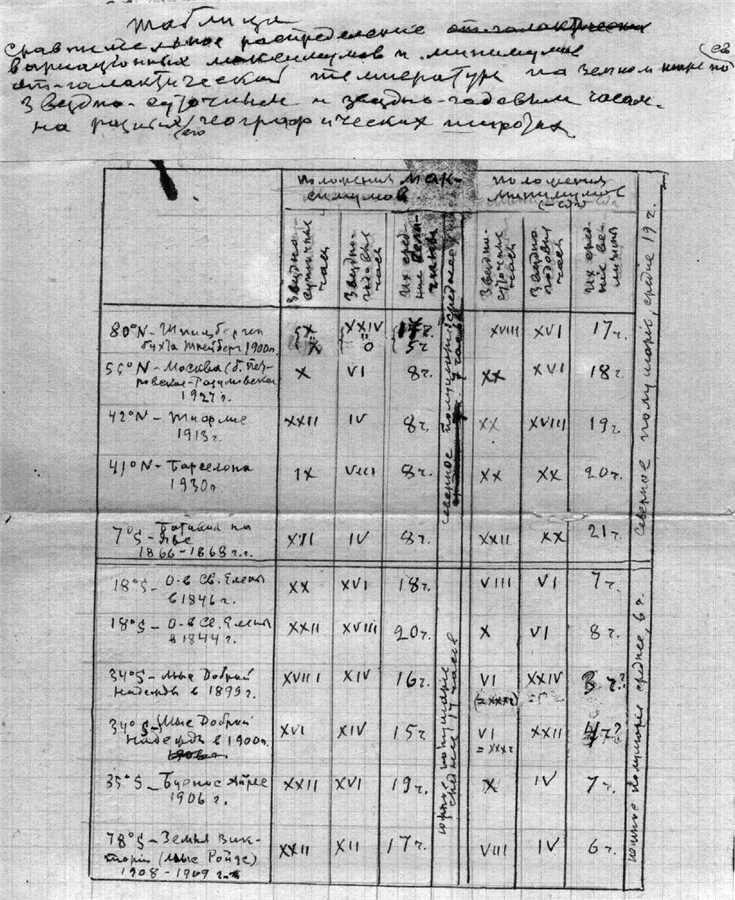 Таблица
сравнительное распределение
вариационных максимумов и минимумов
от-галактической температуры на земном шаре по
звездно-суточным и звездно-годовым часам
на разных географических широтах
его
положения максимумов
положения минимумов
Звездно-суточные часы
Звездно-годовые часы
Их средние величины
Звездно-суточные часы
Звездно-годовые часы
Их средние величины
80°N - Шпицберген XXIV XVIII XVI 17ч.
бухта 1900г. X 0 5ч.
55°N - Москва (б. Петровское-Разумовское X VI 8ч. XX XVI 18ч.
1927г.
42°N - XXII IV 8ч. XX XVIII 19ч.
1913г.
41°N - Барселона IX VIII 8ч. XX XX 20ч.
1930г
7°S - Батавия на IV 8ч. XXII XX 21ч.
Яве
1866-1868г.г.
18°S - О-в Св. Елены XX XVI 18ч. VIII VI 7ч.
в 1846г.
18°S - О-в Св. Елены XXII XVIII 20ч. X VI 8ч.
в 1844г.
34°S - Мыс Доброй XVIII XIV 16ч. VI XXIV 3ч.?
надежды в 1899г.
34°S - Мыс Доброй XVI XIV 15ч. VI XXII 4ч?
надежды в 1900г.
35°S - Буенос Айрес XXII XVI 19ч. X IV 7ч.
1906г.
78°S - Земля Виктории (мыс Ройдс) XXII XII 17ч. VIII IV 6ч.
1908-1909г.г.
северное полушарие среднее
южное полушарие среднее 17 часов
северное полушарие, среднее 19ч.
южное полушарие среднее, 6ч.